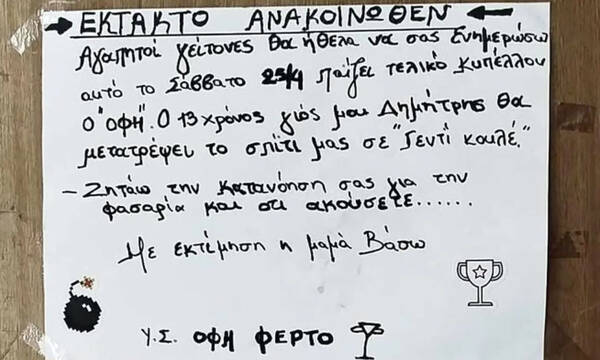 → ΕΚΤΑΚΤΟ ΑΝΑΚΟΙΝΩΘΕΝ ←
Αγαπητοί γείτονες θα ήθελα να σας ενημερώσω
αυτό το Σάββατο 25/4 παίζει τελικό κυπέλλου
ο "ΟΦΗ". Ο 13χρονος γιός μου Δημήτρης θα
μετατρέψει το σπίτι μας σε "Γεντί κουλέ."
- Ζητάω την κατανόηση σας για την
φασαρία και οτι ακούσετε......
Με εκτίμηση η μαμά Βάσω
Υ.Σ. ΟΦΗ ΦΕΡΤΟ